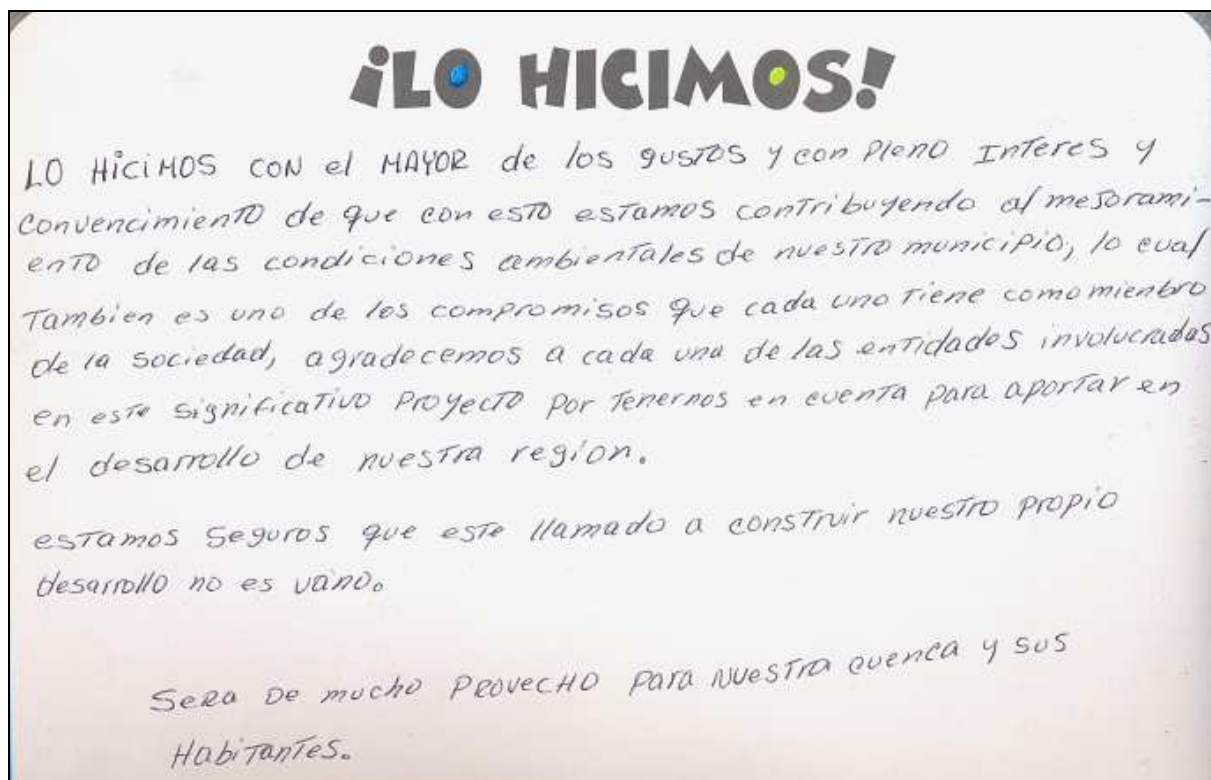 ¡LO HICIMOS!
LO HiciMOS CON el MAYOR de los gustos y con Pleno Interes y
convencimiento de que con esto estamos contribuyendo al mejorami-
ento de las condiciones ambientales de nuestro municipio, lo cual
Tambien es uno de los compromisos que cada uno Tiene como mienbro
de la sociedad, agradecemos a cada una de las entidades involucradas
en este significativo Proyecto por Tenernos en cuenta para aportar en
el desarrollo de nuestra region.
estamos Seguros que este llamado a construir nuestro propio
desarrollo no es vano.
Sera De mucho PROVECHO para NUESTRA cuenca y sus
HabiTanTes.